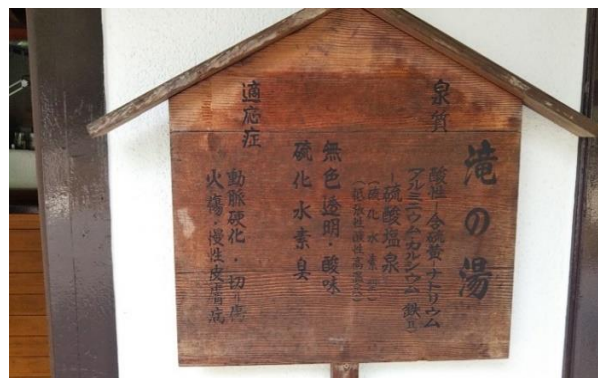 滝の湯
泉質
酸性-含硫黄-ナトリウム
アルミニウム・カルシウム 鉄(Ⅱ)
-硫酸塩泉
(硫化水素型)
(低張性酸性高温泉)
無色透明・酸味
硫化水素臭
適応症
動脈硬化・切り傷
火傷・慢性皮膚病